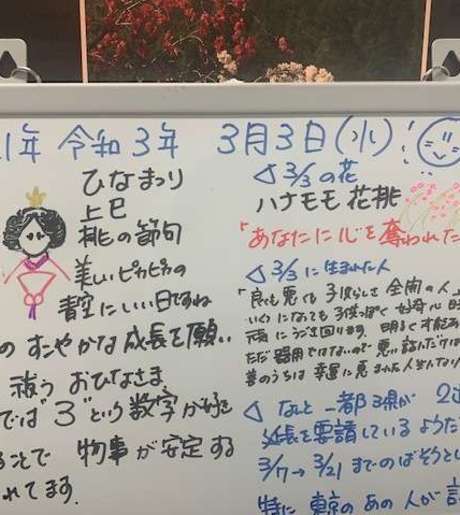 1年 令和3年 3月3日(水)!
ひなまつり
上巳
桃の節句
美しいピカピカの
青空にいい日ですね
のすこやかな成長を願い
祓う おひなさま
では"3"という数字が好き
ることで 物事が安定する
れてます.
◁ 3/3の花
ハナモモ 花桃
「あなたに心を奪われた
◁ 3/3に生まれた人
「良くも悪くも子供らしさ全開の人
いくつになっても子供っぽく好奇心旺
にうごき回ります. 明るく才能あ
ただ器用ではないので悪い
のうちは幸運に恵まれた人生
◁ なんと 一都3県が 2週
延長を要請しているようだ
3/7→3/21までのばそうとい
特に 東京のあの人が